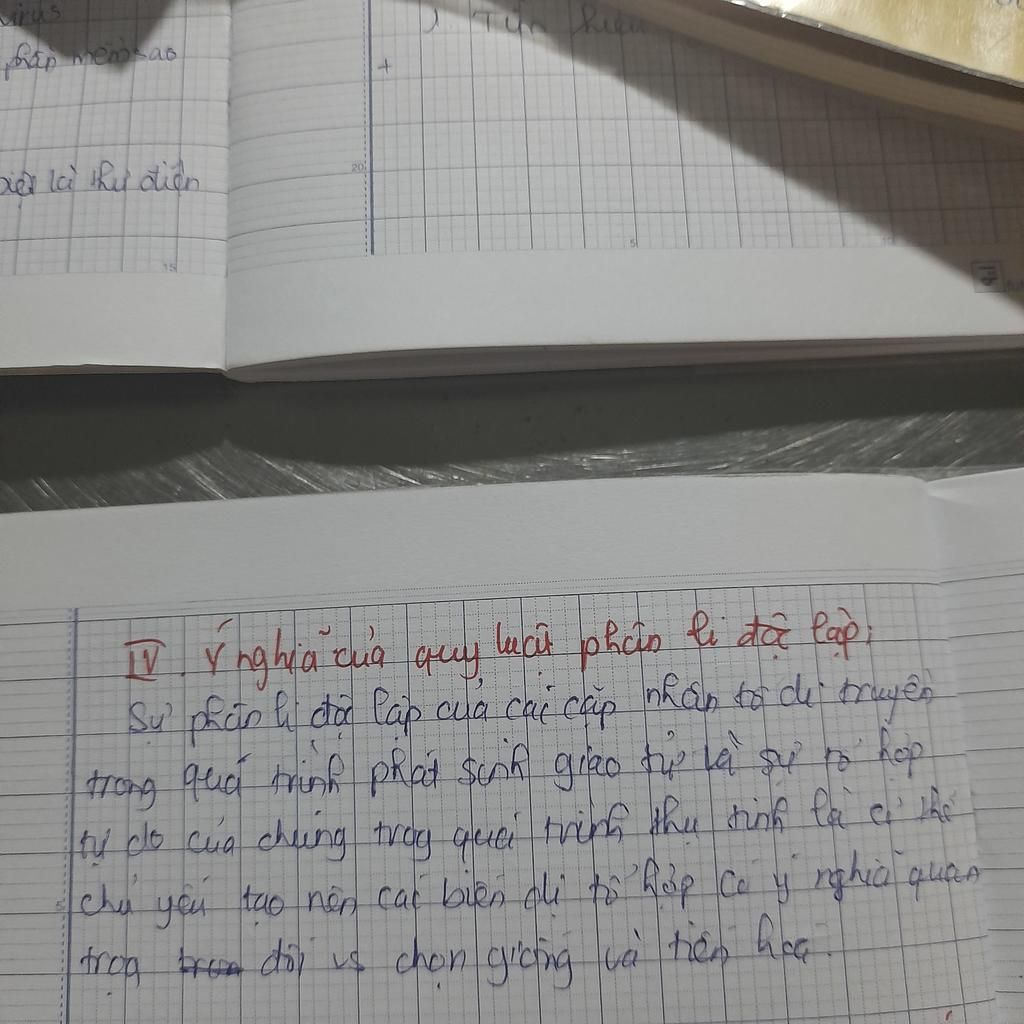 virus
phần mềm sao
) Tín hiệu
+
20
là thư điện
15
5
10
IV. Ý nghĩa của quy luật phân li độc lập:
Sự phân li độc lập của các cặp nhân tố di truyền
trong quá trình phát sinh giao tử là sự tổ hợp
tự do của chúng trog quá trình thụ tinh là cơ chế
chủ yếu tạo nên các biến dị tổ hợp có ý nghĩa quan
trọg đối vs chọn giống và tiến hoá.